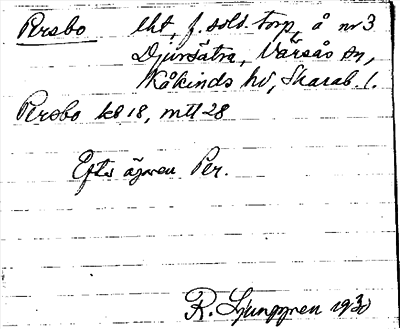 Persbo lht, f. sold. torp, å nr 3
Djursätra, Varsås sn,
Kåkinds hd, Skarab. l.
Persbo kb 18, mtl 28
Efter ägaren Per.
R. Ljunggren 1930